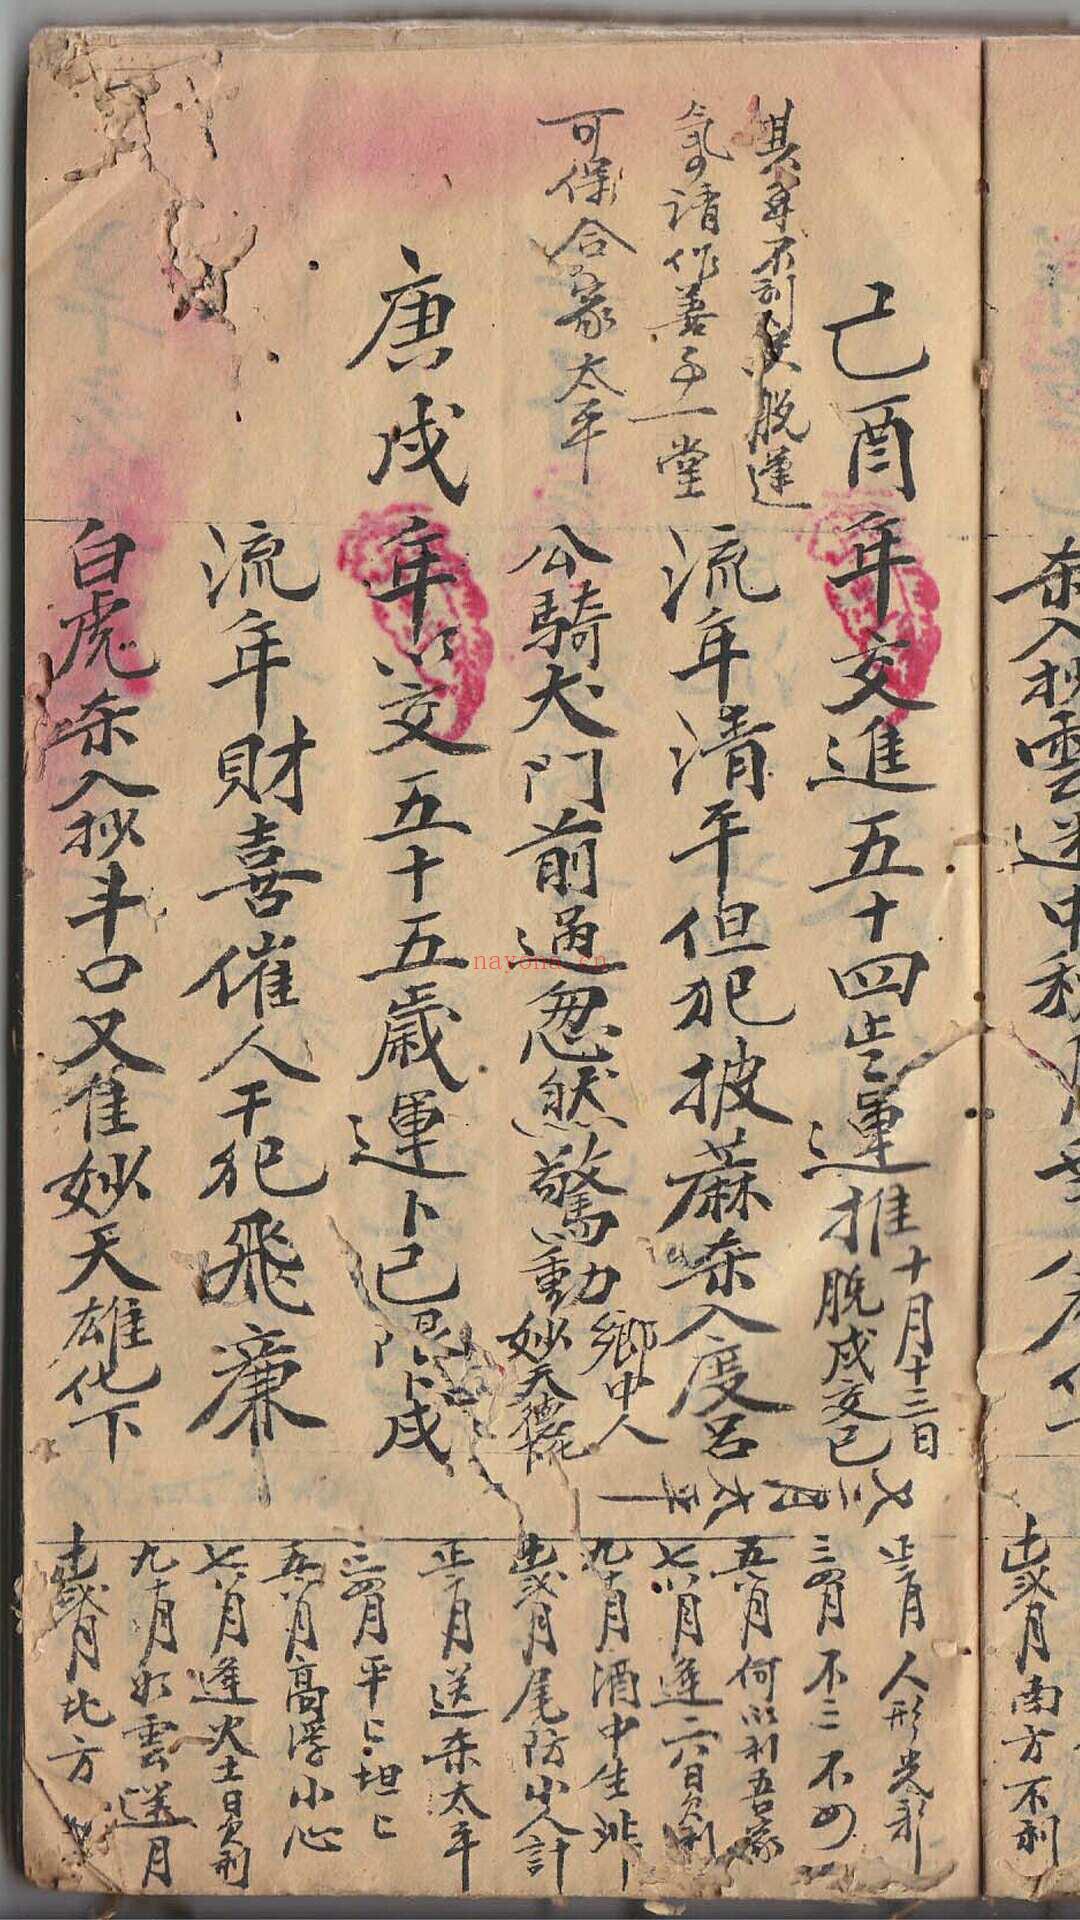 杀入抄雲迷中秋
十二歲月南方不利
其年不利失脫運
氣可請作善子一堂
可保合家太平
己酉年交進五十四歲運推
十月十三日
脫戌交己
流年清平但犯披蔴杀入度呂
公騎犬門前過忽然驚動
鄉中人
妙天德
正二月人形光彩
三四月不三不四
五六月何以利吾家
七八月逢二六日欠利
九十月酒中生非
十二歲月尾防小人計
庚戌年以交五十五歲運卜己
卜戌
流年財喜催人干犯飛廉
白虎杀入抄斗口又隹妙天雄化下
正二月送杀太平
三四月平平坦坦
五六月高浮小心
七八月逢火土日欠利
九十月如雲送月
十二歲月北方
nayona.cn